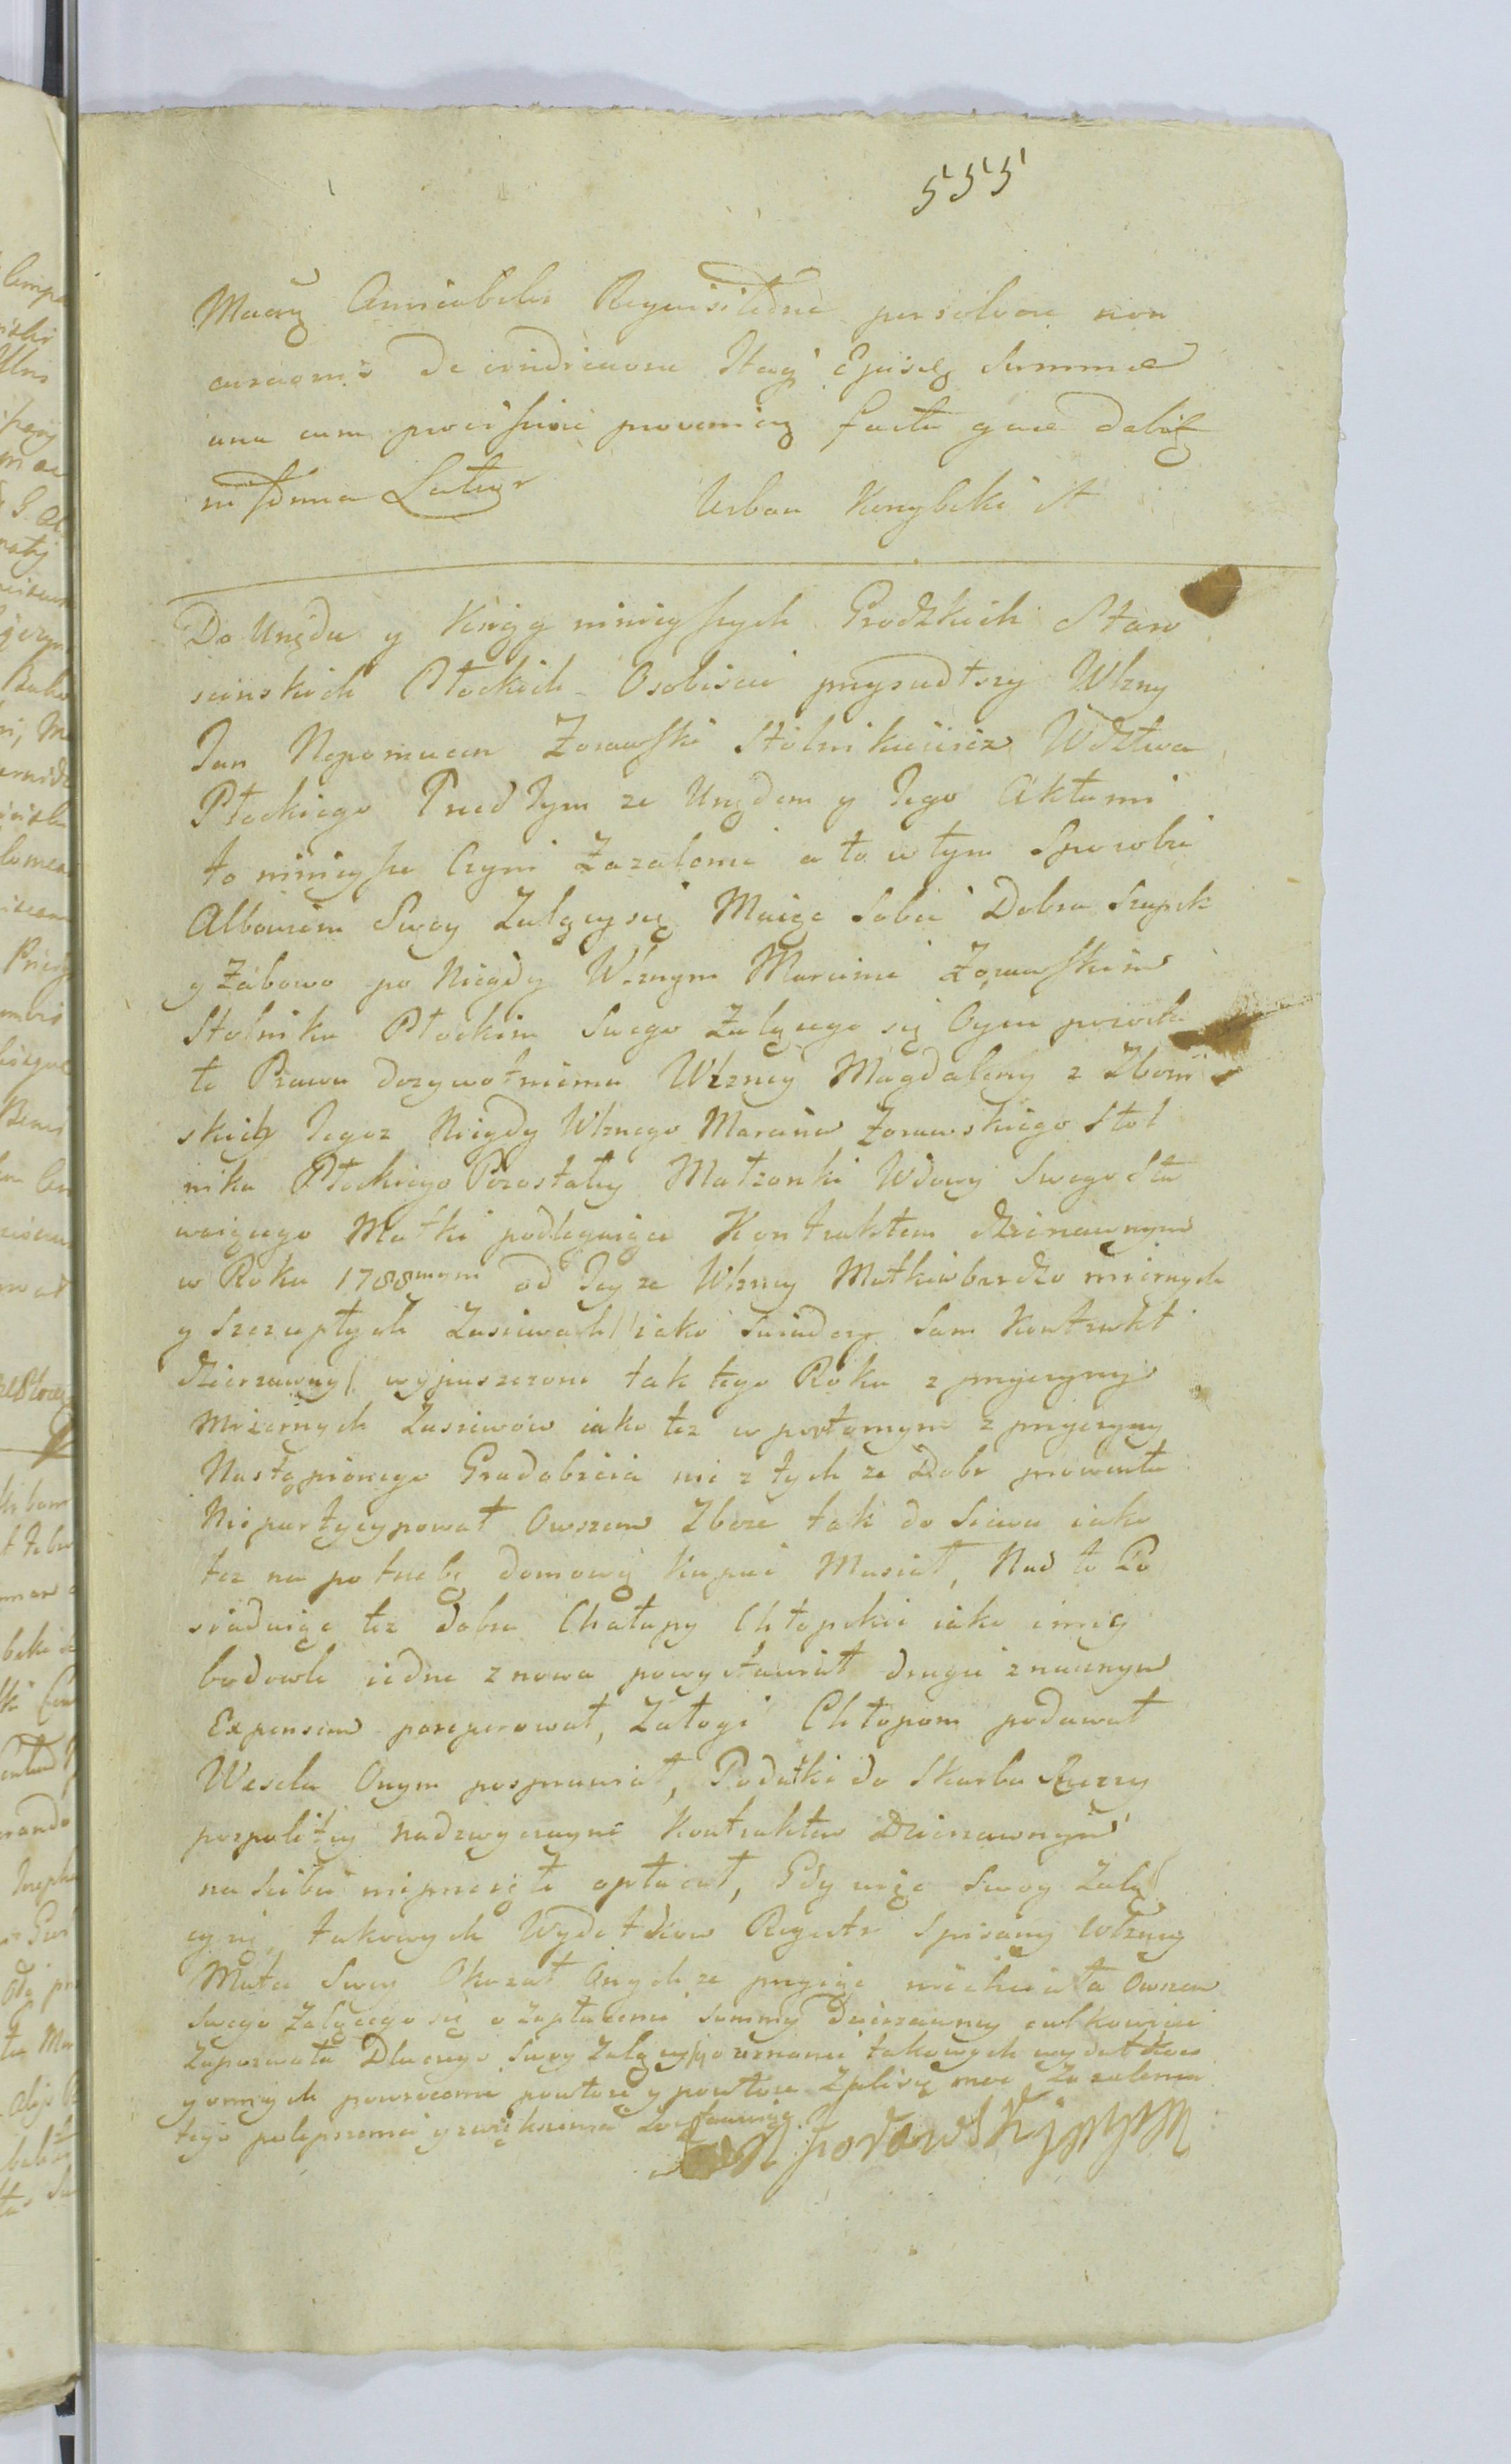 555
Many Amicabiliter persolvere non
De Summae
una cum facta quae
Latius
Urban Kenybski
Do Urzędu y Xsiąg ninieyszych Grodzkich Staro
scinskich Płockich Osobiscie przyszedłszy Wlzny
Jan Nepomucen Zorawski Stolnikiewicz Wdztwa
Płockiego Przed Tym ze Urzędem y Jego Aktami
to ninieysze Czyni Zazalenie a to w tym Sposobie
Albowiem Swoy Zalący się Maiąc Sobie Dobra Szupsk
y Zabowo po Niegdy Wlznym Marcinie Zorawskim
Stolniku Płockim Swego Zalącego się Oycu pozosta
te Prawu dozywotniemu Wlzney Magdaleny z
skich Jegoz Niegdy Wlznego Marcina Zorawskiego Stol
nika Płockiego Pozostałey Małzonki Wdowy Swego Sta
waiącego Matki podlegaiące Kontraktem Dzierzawnym
w Roku 1788mym od Jey ze Wlzney Matki w bardzo miernych
y Szczupłych Zasiewach / iako Swiadczy Sam Kontrakt
Dzierzawny / wypuszczone tak tego Roku z przyczyny
Miernych Zasiewow iako tez w przyczyny
Nastąpionego Gradobicia nic z tych ze Dobr prowentu
Niepartycypował Owszem Zboze tak do Siewu iako
tez na potrzebę domową kupać Musiał, Nad to Po
siadaiąc tez dobra Chałupy Chłopskie iako inną
budowle iedne znowu powystawiał drugie znacznym
Expensem poreperował, Załogi Chłopom podawał
Wesela Onym posprawiał, Podatki do Skarbu Rzeczy
pospolitey nadzwyczayne Kontraktem Dzierzawnym
na siebie nieprzeięte opłacał, Gdy więc Swoy Zalą
cy się takowych Wydatkow Regestr Spisany Wlzney
Matce Swey Okazał Onych ze przyiąc niechciała Owszem
Swego Zalącego się o zapłacenie Summy Dzierzawney całkowicie
Zapozwała Dlaczego Swoy Zalący się o uznanie takowych wydatkow
y onych powrocenie powtore y powtore Zali się moc Zazalenia
tego polepszenia y zwiększenia Zostawuiąc